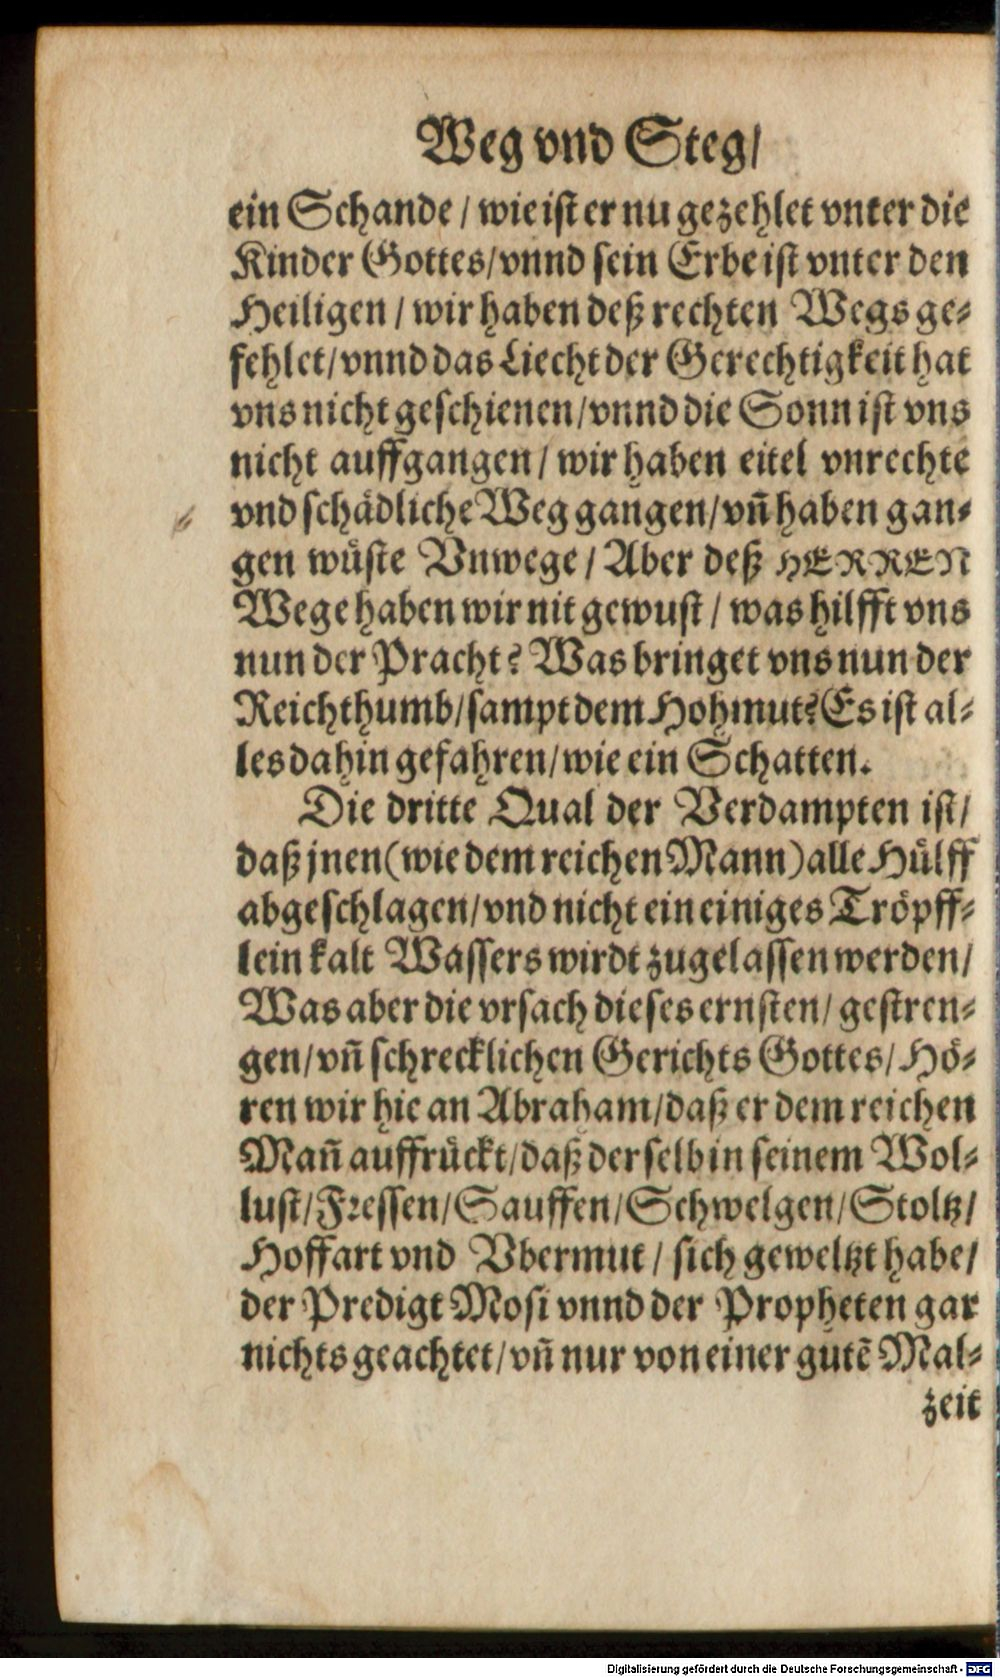 Weg vnd Steg/
ein Schande / wie ist er nu gezehlet vnter die
Kinder Gottes/vnnd sein Erbe ist vnter den
Heiligen / wir haben deß rechten Wegs ge-
fehlet/vnnd das Liecht der Gerechtigkeit hat
vns nicht geschienen/vnnd die Sonn ist vns
nicht auffgangen / wir haben eitel vnrechte
vnd schädliche Weg gangen/vñ haben gan-
gen wüste Vnwege / Aber deß HERREN
Wege haben wir nit gewust / was hilfft vns
nun der Pracht? Was bringet vns nun der
Reichthumb/sampt dem Hohmut? Es ist al-
les dahin gefahren/wie ein Schatten.
Die dritte Qual der Verdampten ist/
daß jnen (wie dem reichen Mann) alle Hülff
abgeschlagen/vnd nicht ein einiges Tröpff-
lein kalt Wassers wirdt zugelassen werden/
Was aber die vrsach dieses ernsten/ gestren-
gen/vñ schrecklichen Gerichts Gottes/ Hö-
ren wir hie an Abraham/daß er dem reichen
Mañ auffrückt/daß derselb in seinem Wol-
lust/Fressen/Sauffen/Schwelgen/Stoltz/
Hoffart vnd Vbermut / sich geweltzt habe/
der Predigt Mosi vnnd der Propheten gar
nichts geachtet/vñ nur von einer gutẽ Mal-
zeit
Digitalisierung gefördert durch die Deutsche Forschungsgemeinschaft - DFG